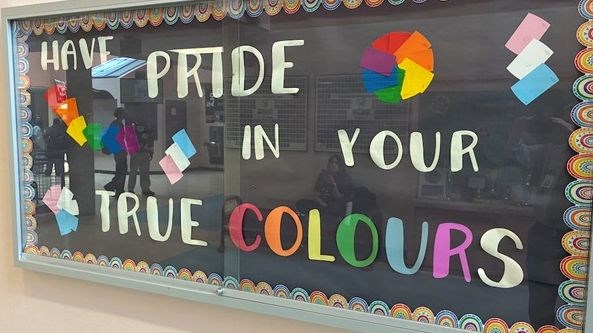 HAVE PRIDE
IN YOUR
TRUE COLOURS